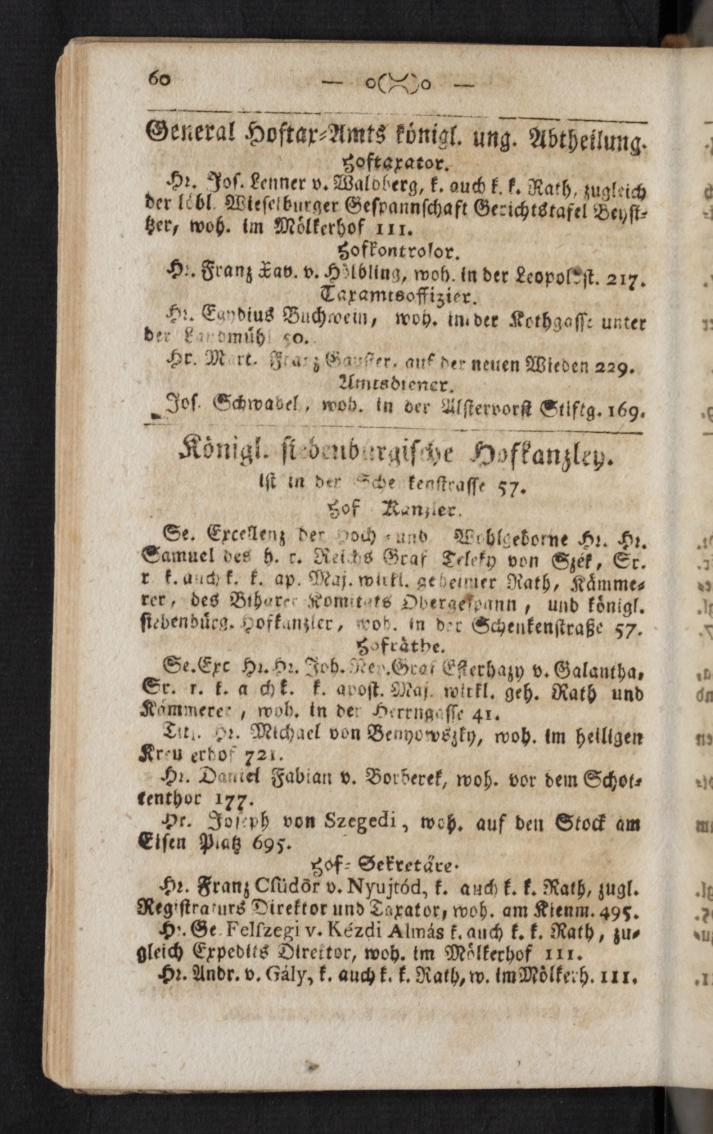 60 — o()o —
General Hoftax-Amts königl. ung. Abtheilung.
Hoftaxator.
Hr. Jos. Lenner v. Waldberg, k. auch k. k. Rath, zugleich
der löbl. Wieselburger Gespannschaft Gerichtstafel Beysi-
tzer, woh. im Mölkerhof 111.
Hofkontrolor.
Hr. Franz Xav. v. Hölbling, woh. in der Leopoldst. 217.
Taxamtsoffizier.
Hr. Egydius Buchwein, woh. in der Kothgasse unter
der Landmühl 50.
Hr. Mart. Franz auf der neuen Wieden 229.
Amtsdiener.
Jos. Schwabel, woh. in der Alstervorst Stiftg. 169.
Königl. siebenburgische Hofkanzley.
Ist in der Schenkenstrasse 57.
Hof Kanzler.
Se. Excellenz der Hoch- und Wohlgeborne Hr. Hr.
Samuel des h. r. Reichs Graf Teleky von Szék, Sr.
r. k. auch k. k. ap. Maj. wirkl. geheimer Rath, Kämme-
rer, des Biharer Komitats Obergespann, und königl.
siebenbürg. Hofkanzler, woh. in der Schenkenstraße 57.
Hofräthe.
Se. Exc Hr. Hr. Joh. Nep. Graf Esterhazy v. Galantha,
Sr. r. k. auch k. k. apost. Maj. wirkl. geh. Rath und
Kämmerer, woh. in der Herrngasse 41.
Titl. Hr. Michael von Benyowszky, woh. im heiligen
Kreuzerhof 721.
Hr. Daniel Fabian v. Borberek, woh. vor dem Schot-
tenthor 177.
Hr. Joseph von Szegedi, woh. auf den Stock am
Eisen Platz 695.
Hof-Sekretäre.
Hr. Franz Csúdör v. Nyujtód, k. auch k. k. Rath, zugl.
Registraturs Direktor und Taxator, woh. am Kienm. 495.
Hr. Ge. Felszegi v. Kézdi Almás k. auch k. k. Rath, zu-
gleich Expedits Direktor, woh. im Mölkerhof 111.
Hr. Andr. v. Gály, k. auch k. k. Rath, w. im Mölkerh. 111.